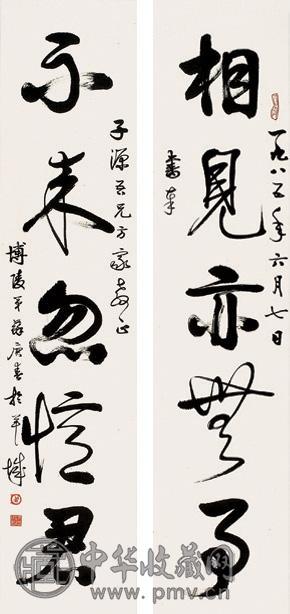 一九八二年六月七日
相見亦無事
書奉
子源吾兄方家教正
不來忽憶君
博陵弟蘇庚春於羊城
中华收藏网
www.pmv.cn